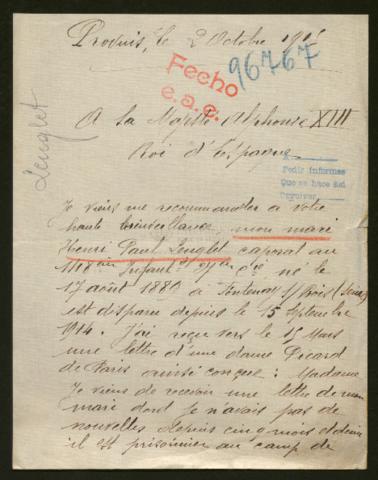 Provins, le 2 Octobre 1915
Fecho
e.a.c.
96767
Lenglet
A Sa Majesté Alphonse XIII
Roi d'Espagne
Pedir informes
Que se hace del
Devolver
Je viens me recommander à votre
haute bienveillance, mon mari
Henri Paul Lenglet caporal au
Infant né le
17 août 1880 à Fontenay s/Bois (Seine)
est disparu depuis le 15 Septembre
1914. J'ai reçu vers le 15 Mars
une lettre d'une dame Picard
de Paris ainsi conçue : Madame
Je viens de recevoir une lettre de mon
mari dont je n'avais pas de
nouvelles depuis cinq mois et demi
il est prisonnier au camp de